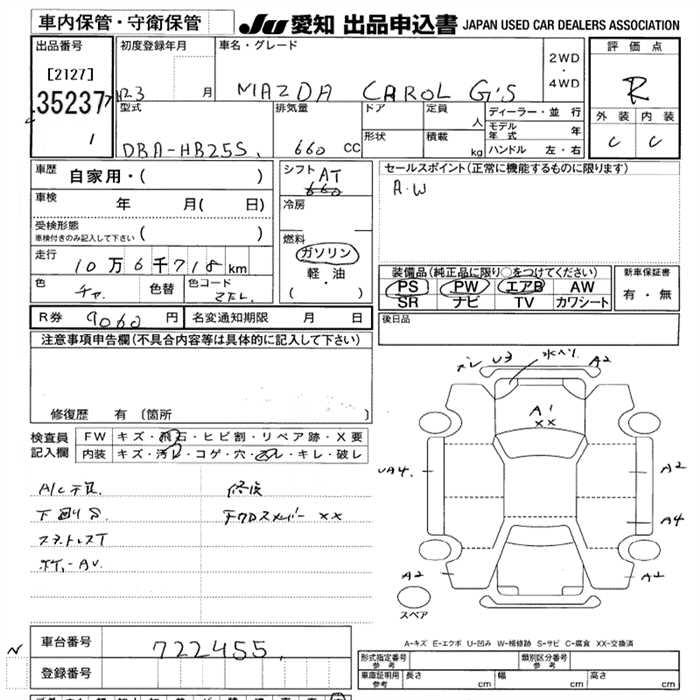 車内保管・守衛保管
JU 愛知 出品申込書 JAPAN USED CAR DEALERS ASSOCIATION
出品番号
[2127]
35237
1
初度登録年月
H23 月
車名・グレード
MAZDA CAROL G'S
2WD
・
4WD
評価点
R
外装 内装
C C
型式
DBA-HB25S
排気量
660 cc
ドア
形状
定員
人
積載
kg
ディーラー・並行
モデル年式 年
ハンドル 左・右
車歴 自家用・( )
車検 年 月( 日)
受検形態
車検付きのみ記入して下さい ( )
走行 10万6千718km
色 チャ
色替
色コード
シフト AT
660
冷房
燃料
ガソリン
軽・油
( )
セールスポイント(正常に機能するものに限ります)
A・W
装備品(純正品に限り○をつけてください)
PS PW エアB AW
SR ナビ TV カワシート
新車保証書
有・無
R券 9060円 名変通知期限 月 日
後日品
注意事項申告欄(不具合内容等は具体的に記入して下さい)
修復歴 有 〔箇所 〕
検査員記入欄
FW キズ・飛石・ヒビ割・リペア跡・X要
内装 キズ・汚レ・コゲ・穴・スレ・キレ・破レ
A/C不良
下廻りS
スタットレスT
修復
キクロスメンバー XX
U3 水ペリ A2
A1
XX
UA4 A2
A4
A2 A2
スペア
A-キズ E-エクボ U-凹み W-補修跡 S-サビ C-腐食 XX-交換済
車台番号 722455
N
登録番号
形式指定番号
参考
類別区分番号
参考
車庫証明用
参考
長さ cm 幅 cm 高さ cm